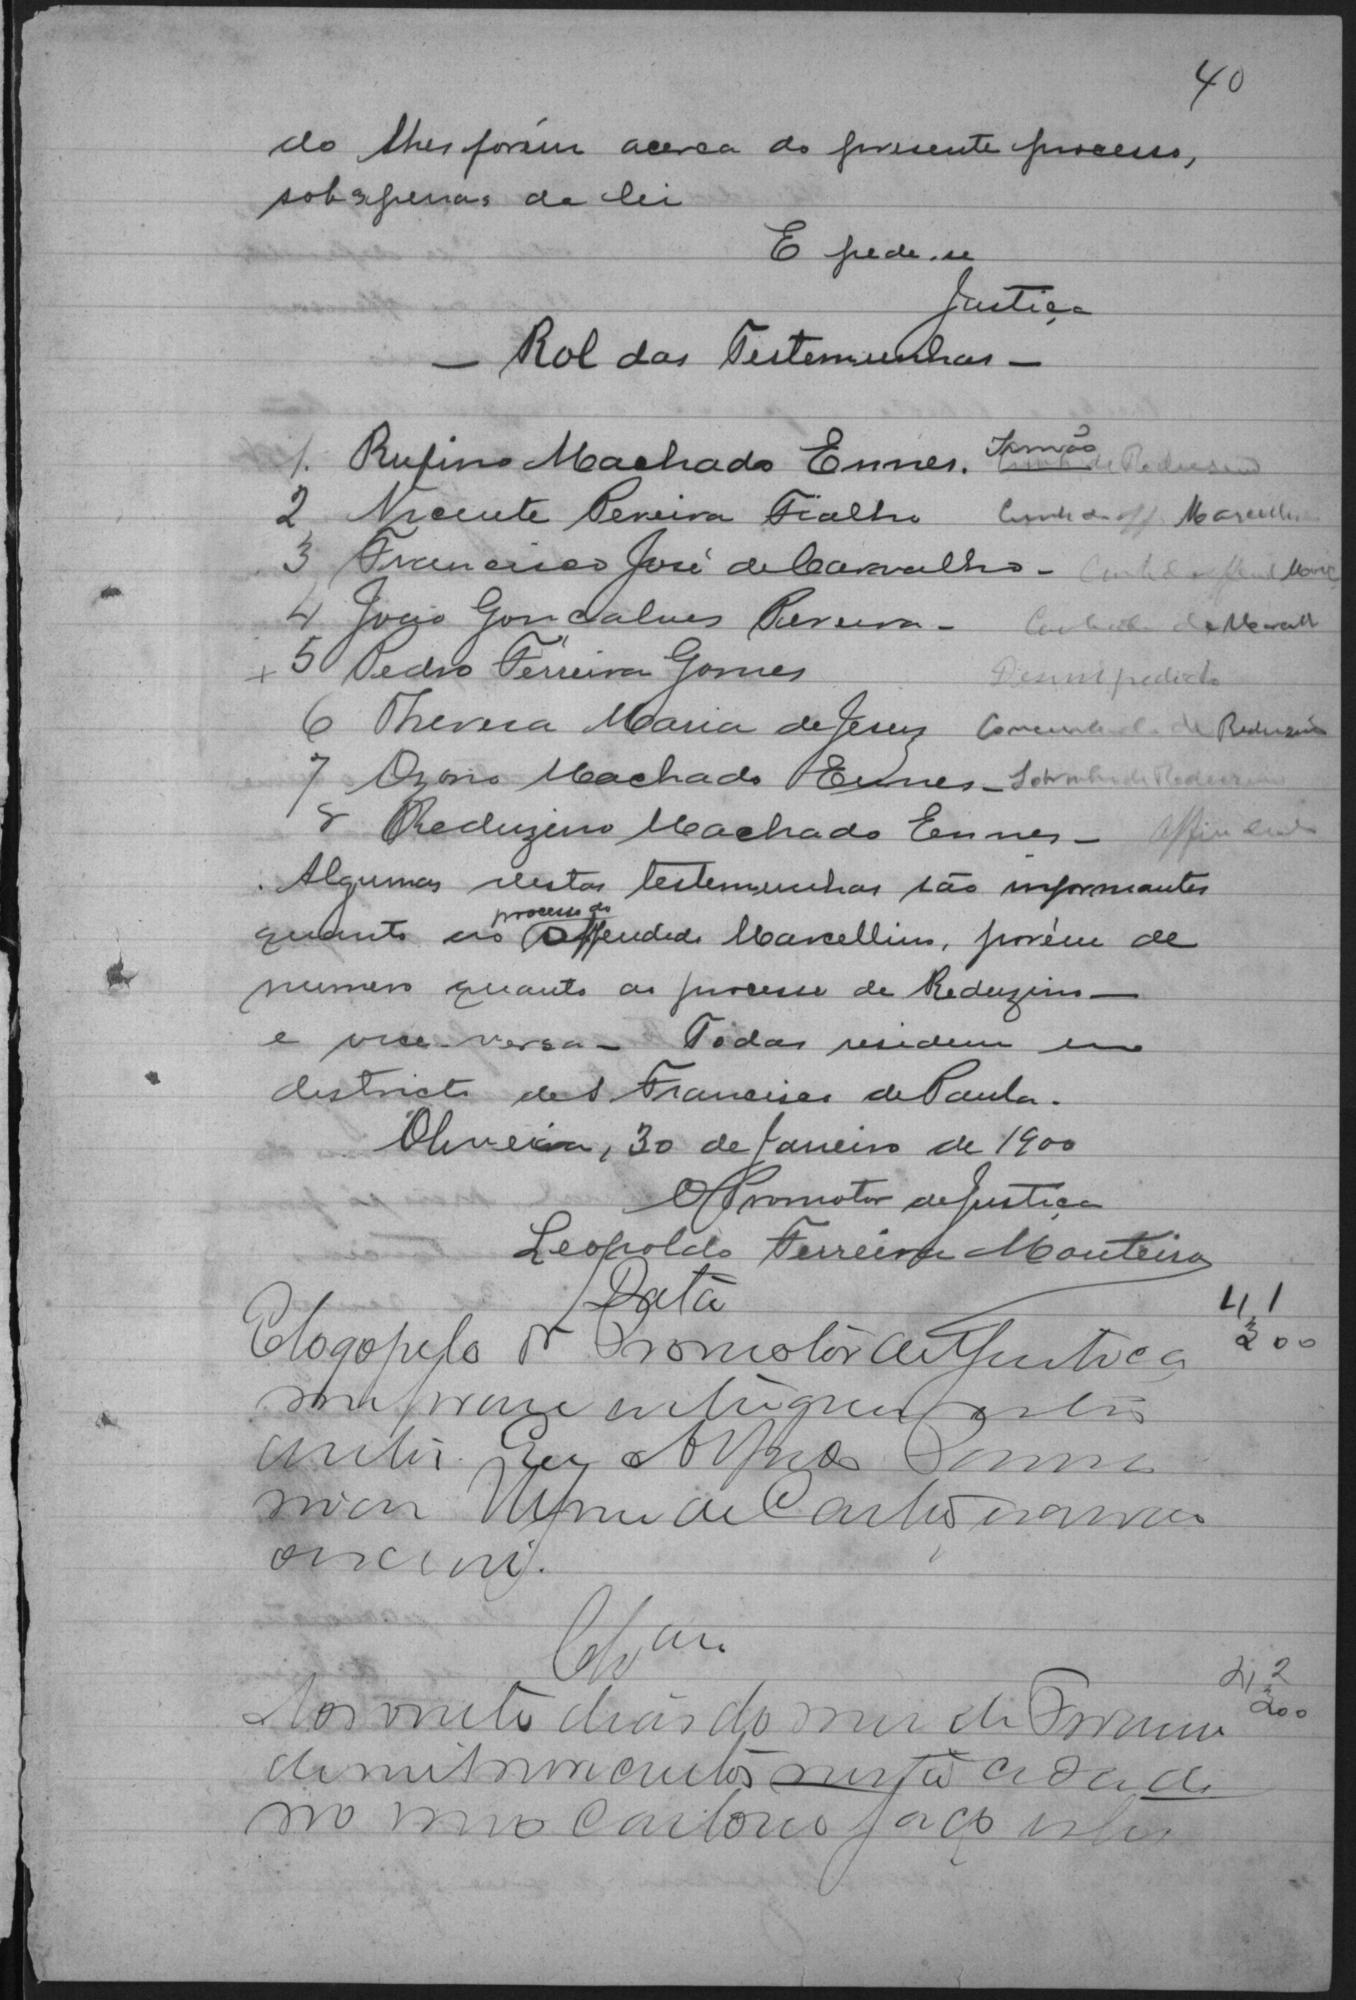 40
do lhes forem acerca do presente processo,
sob as penas da lei
E pede-se
Justiça
— Rol das Testemunhas —
1. Rufino Machado Ennes. Irmão de Reduzino
2 Vicente Pereira Fialho Cunhado off. Marcellino
3 Francisco José de Carvalho —
4 João Gonçalves Pereira — Cunhado de Marcell
+ 5 Pedro Ferreira Gomes Desimpedido
6 Thereza Maria de Jesus de Reduzino
7 Ozorio Machado Ennes — Sobrinho de Reduzino
8 Reduzino Machado Ennes — Offendido
Algumas destas testemunhas são informantes
quanto ao processo do Offendido Marcellino, porém de
numero quanto ao processo de Reduzino —
e vice-versa — Todas residem no
districto de S Francisco de Paula.
Oliveira, 30 de Janeiro de 1900
O Promotor de Justiça
Leopoldo Ferreira Monteiro
Data
4, 1
200
E logo pelo Dr Promotor de Justiça
me foram entregues estes
autos. Eu Alfredo
de Castro escrivão
escrevi.
Clsam
4, 2
200
Aos oito dias do mez de Fevereiro
de mil novecentos nesta cidade
no meo Cartorio faço estes